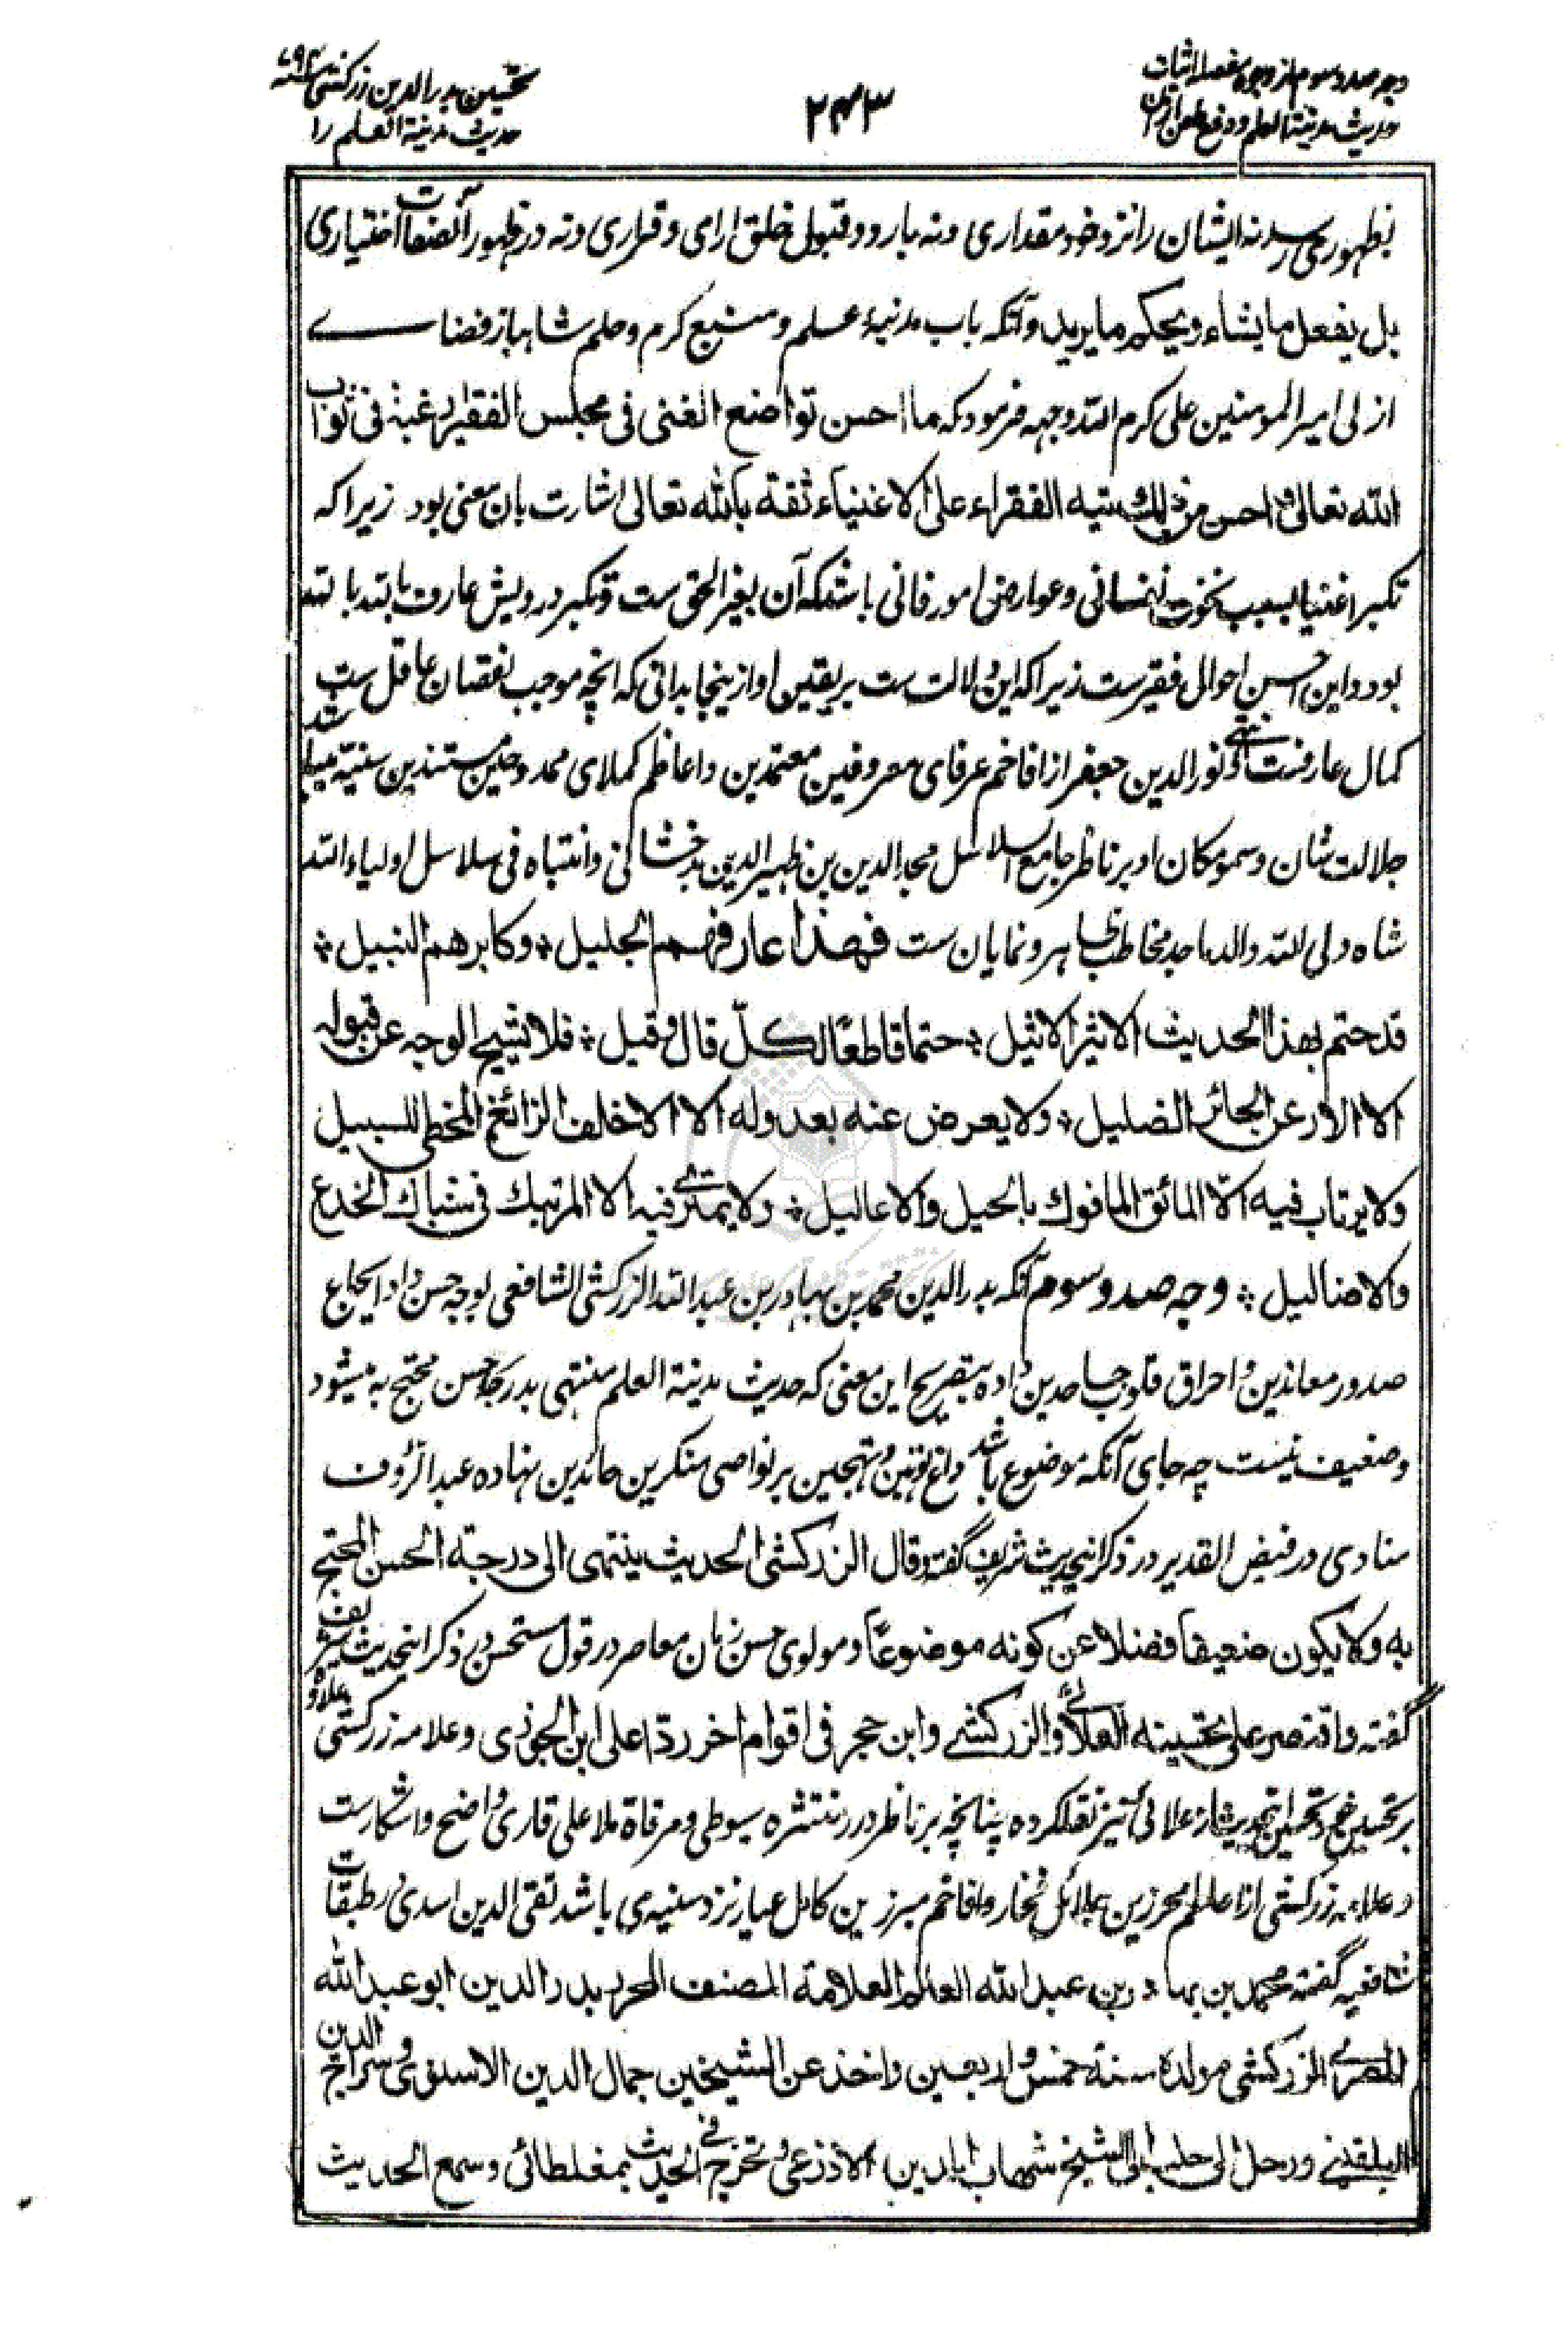 وجه صد و سوم از وجوه مفصله اثبات
حدیث مدینة العلم و دفع طعن از آن
۲۴۳
تحسین بدرالدین زرکشی سنه ۷۹۴
حدیث مدینة العلم را
بظهور می رسد نه ایشان را نزد خود مقداری و نه بار و د قبول خلق ارامی و قراری و نه در ظهور آن صفات اختیاری
بل یفعل ما یشاء و یحکم ما یرید و آنکه باب مدینۀ علم و منبع کرم و حلم شاهباز فضاے
ازلی امیر المومنین علی کرم الله وجهه فرمود که ما احسن تواضع الغنی فی مجلس الفقیر رغبة فی ثواب
الله تعالی و احسن من ذلک تیه الفقراء علی الاغنیاء ثقة بالله تعالی اشارت بان معنی بود زیرا که
تکبر اغنیا بسبب نخوت نفسانی و عوارض امور فانی باشد که آن بغیر الحق ست و تکبر درویش عارف بالله بالله
بود و این احسن احوال فقیر ست زیرا که این دلالت ست بر یقین او ازینجا بدانی که انچه موجب نقصان عاقل ست
کمال عارفست انتهی و نور الدین جعفر از افاخم عرفای معروفین معتمدین و اعاظم کملای ممدوحین مستندین سنیه میباشد
جلالت شان و سمو مکان او بر ناظر جامع السلاسل مجد الدین بن ظهیر الدین بدخشانی و انتباه فی سلاسل اولیاء الله
شاه ولی الله والد ماجد مخاطب ظاهر و نمایان ست فهذا عارفهم الجلیل * و کابرهم النبیل *
قد حتم بهذا الحدیث الاثیر الاثیل * حتما قاطعا لکل قال و قیل * فلا یشیح الوجه عن قبوله
الا الارعن الجائر الضلیل * و لا یعرض عنه بعدوله الا الاخلف الزائغ المخطی للسبیل
و لا یرتاب فیه الا المائق المافوک بالحیل و الاعالیل * و لا یمتری فیه الا المرتبک فی شباک الخدع
و الاضالیل * وجه صد و سوم آنکه بدر الدین محمد بن بهادر بن عبد الله الزرکشی الشافعی بوجه حسن داد ایجاع
صدور معاندین و احراق قلوب جاحدین داده بتصریح این معنی که حدیث مدینة العلم منتهی بدرجۀ حسن محتج به میشود
و ضعیف نیست چه جای آنکه موضوع باشد داغ توهین و تهجین بر نواصی منکرین حائدین نهاده عبد الرؤف
مناوی در فیض القدیر در ذکر اینحدیث شریف گفته و قال الزرکشی الحدیث ینتهی الی درجة الحسن المحتج
به و لا یکون ضعیفا فضلا عن کونه موضوعا و مولوی حسن زمان معاصر در قول مستحسن در ذکر اینحدیث شریف
گفته و اقتصر علی تحسینه العلائی و الزرکشے و ابن حجر فی اقوام اخر ردا علی ابن الجوزی و علامه زرکشی علاوه
بر تحسین خود تحسین اینحدیث از علائی نیز نقل کرده چنانچه بر ناظر درر منتثره سیوطی و مرقاة ملا علی قاری واضح و اشکارست
و علامه زرکشی از اعاظم محرزین جلائل فخار و افاخم مبرزین کامل عیار نزد سنیه می باشد تقی الدین اسدی در طبقات
شافعیه گفته محمد بن بهادر بن عبد الله العالم العلامة المصنف المحرر بدر الدین ابو عبد الله
المصری الزرکشی مولده سنة خمس و اربعین و اخذ عن الشیخین جمال الدین الاسنوی و سراج الدین
البلقینی و رحل الی حلب الی الشیخ شهاب الدین الاذرعی و تخرج فی الحدیث بمغلطائی و سمع الحدیث